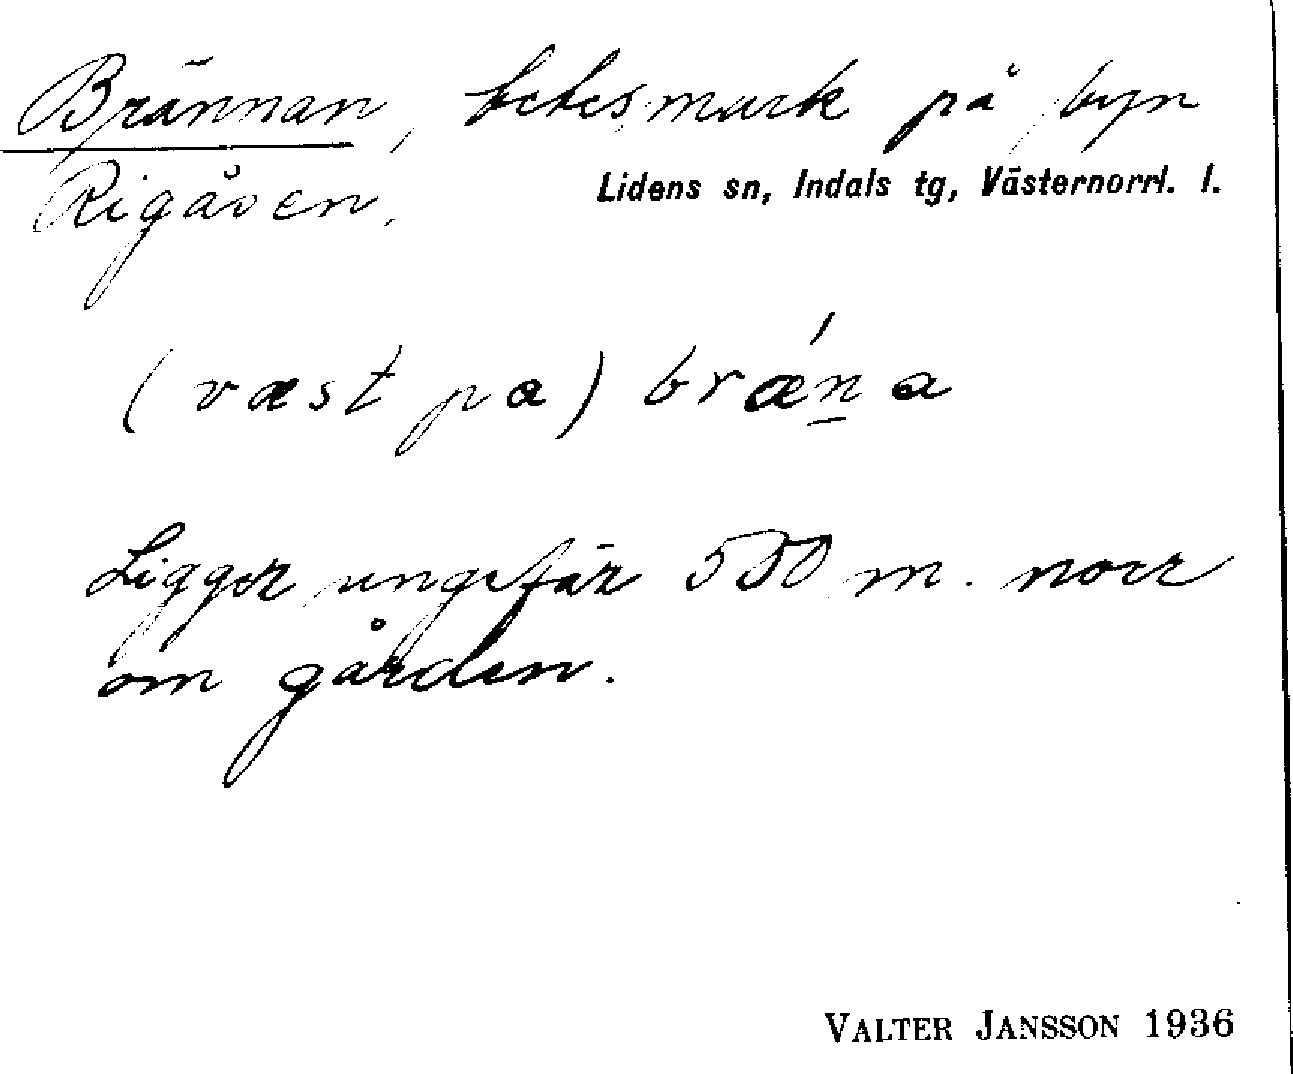 Brännan, betesmark på byn
Rigåven,
Lidens sn, Indals tg, Västernorrl. l.
(væst pa) brǽn̲a
Ligger ungefär 550 m. norr
om gården.
VALTER JANSSON 1936